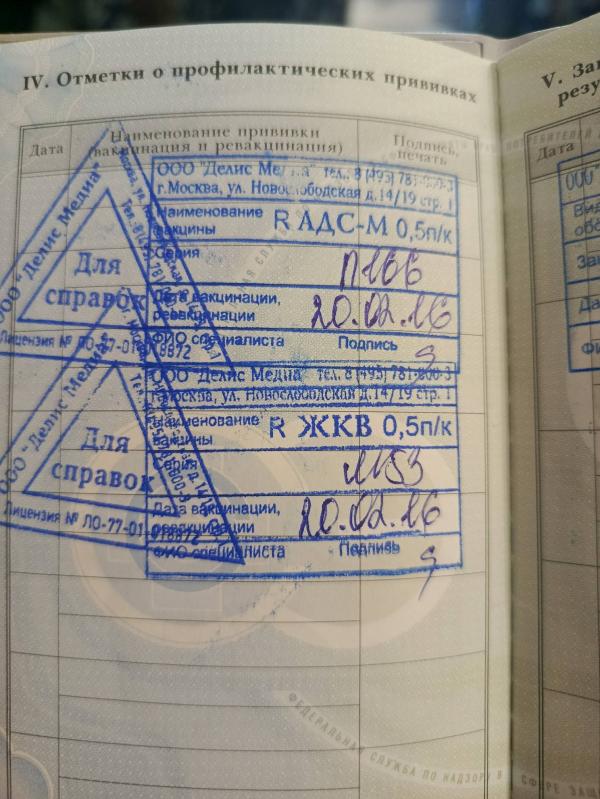 IV. Отметки о профилактических прививках
Дата
Наименование прививки
(вакцинация и ревакцинация)
Подпись,
печать
ООО "Делис Медиа" тел.: 8 (495) 781-800-3
г.Москва, ул. Новослободская д.14/19 стр. 1
Наименование
вакцины
R АДС-М 0,5п/к
Серия
П166
Дата вакцинации,
ревакцинации
20.02.16
ФИО специалиста
Подпись
ООО "Делис Медиа"
Для
справок
Лицензия № ЛО-77-01
18872
ООО "Делис Медиа" тел. 8 (495) 781-800-3
г.Москва, ул. Новослободская д.14/19 стр. 1
Наименование
вакцины
R ЖКВ 0,5п/к
Серия
Дата вакцинации,
ревакцинации
20.02.16
ФИО специалиста
Подпись
ООО "Делис Медиа"
Для
справок
Лицензия № ЛО-77-01
018872
ФЕДЕРАЛЬНАЯ СЛУЖБА ПО НАДЗОРУ В СФЕРЕ ЗАЩ
V. За
резу
Дата
ООО
Ви
обс
За
Да